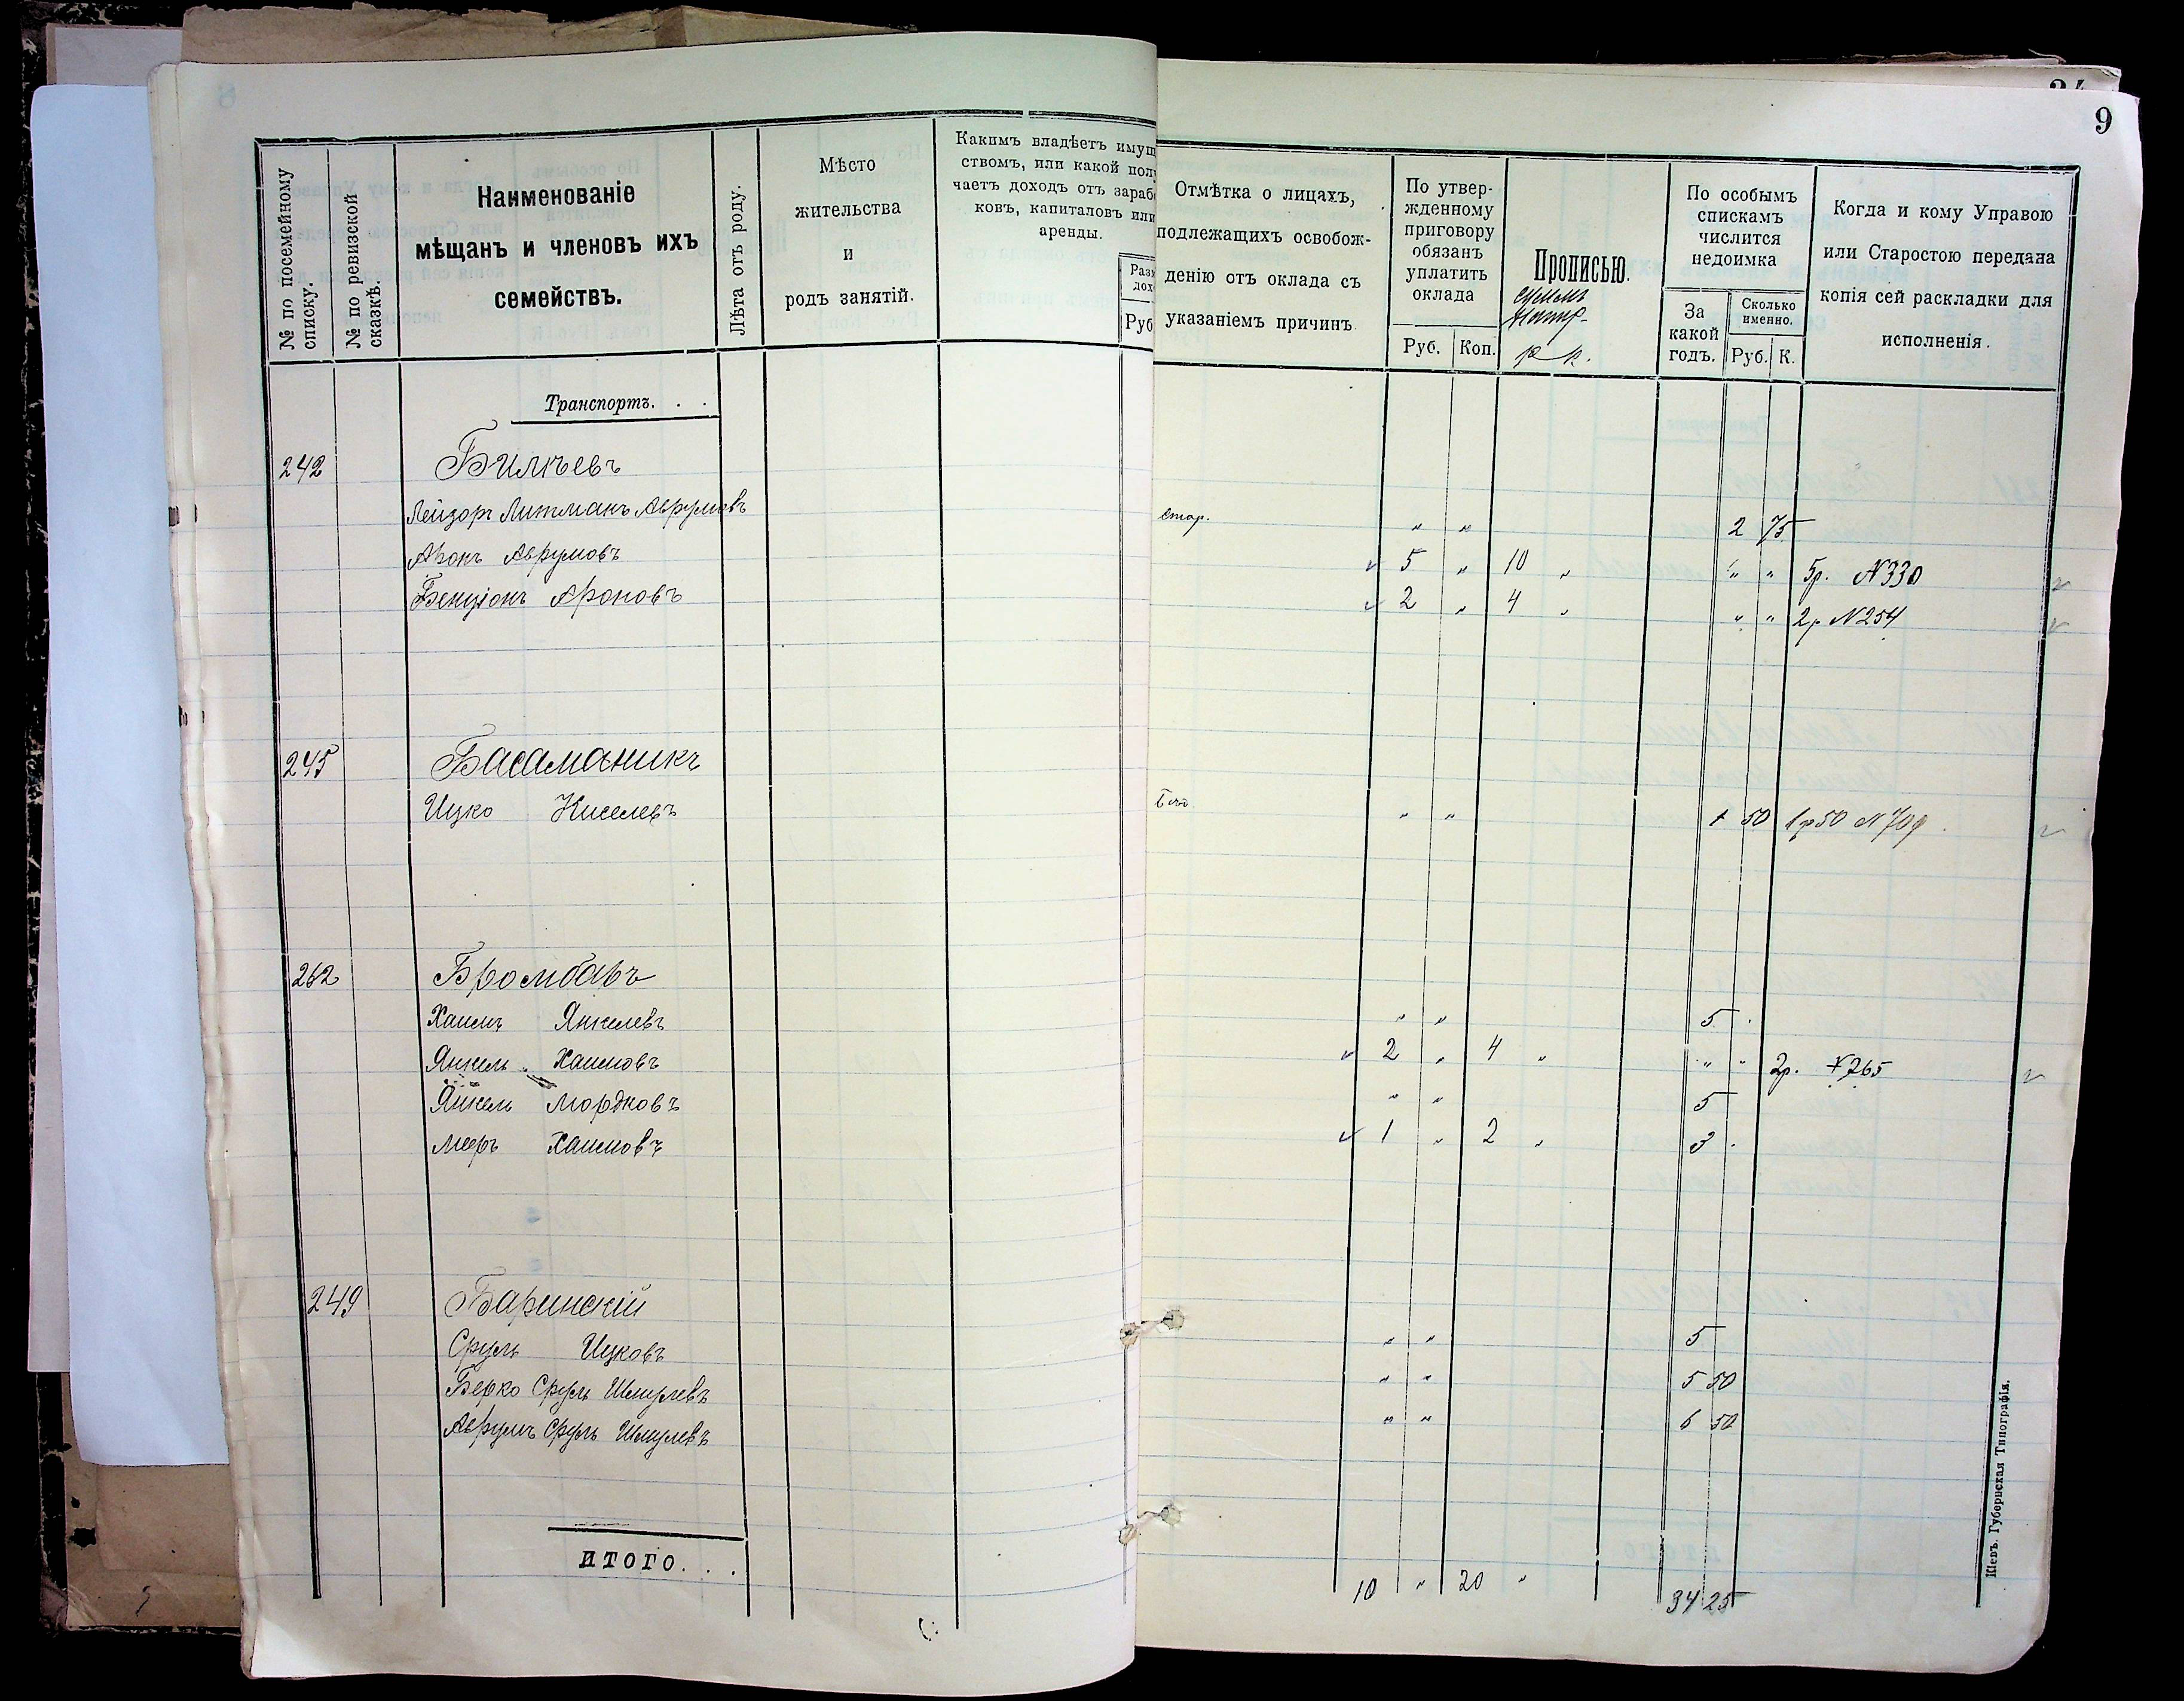 9
№ по посемейному списку.
№ по ревизской сказкѣ.
Наименованіе
мѣщанъ и членовъ ихъ
семействъ.
Лѣта отъ роду.
Мѣсто
жительства
и
родъ занятій.
Какимъ владѣетъ имущ
ствомъ, или какой пол
чаетъ доходъ отъ зараб
ковъ, капиталовъ или
аренды.
Руб
Отмѣтка о лицахъ,
подлежащихъ освобож-
денію отъ оклада съ
указаніемъ причинъ.
По утвер-
жденному
приговору
обязанъ
уплатить
оклада
Руб. Коп.
Прописью.
р к.
По особымъ
спискамъ
числится
недоимка
За
какой
годъ.
Сколько
именно.
Руб. К.
Когда и кому Управою
или Старостою передана
копія сей раскладки для
исполненія.
Транспортъ. . .
242 Билкъевъ
Лейзоръ Литманъ Аврумовъ стар. " " 2 75
Аронъ Аврумовъ 5 " 10 " " " 5р. N330
Бенціонъ Ароновъ 2 " 4 " " " 2р N254
245 Басаманикъ
Ицко Киселевъ " " 1 50 1р50 N709
262 Бромбаръ
Хаимъ Янкелевъ " " 5 .
Янкель Хаимовъ 2 " 4 " " " 2р. 765
Янкель Мордковъ " " 5
Меръ Хаимовъ 1 " 2 " 3 .
249 Баринскій
Сруль Ицковъ " " 5
Берко Сруль Шмулевъ " " 5 50
Аврумъ Сруль Шмулевъ " " 6 50
ИТОГО. . . 10 " 20 " 34 25
Кіевъ. Губернская Типографія.